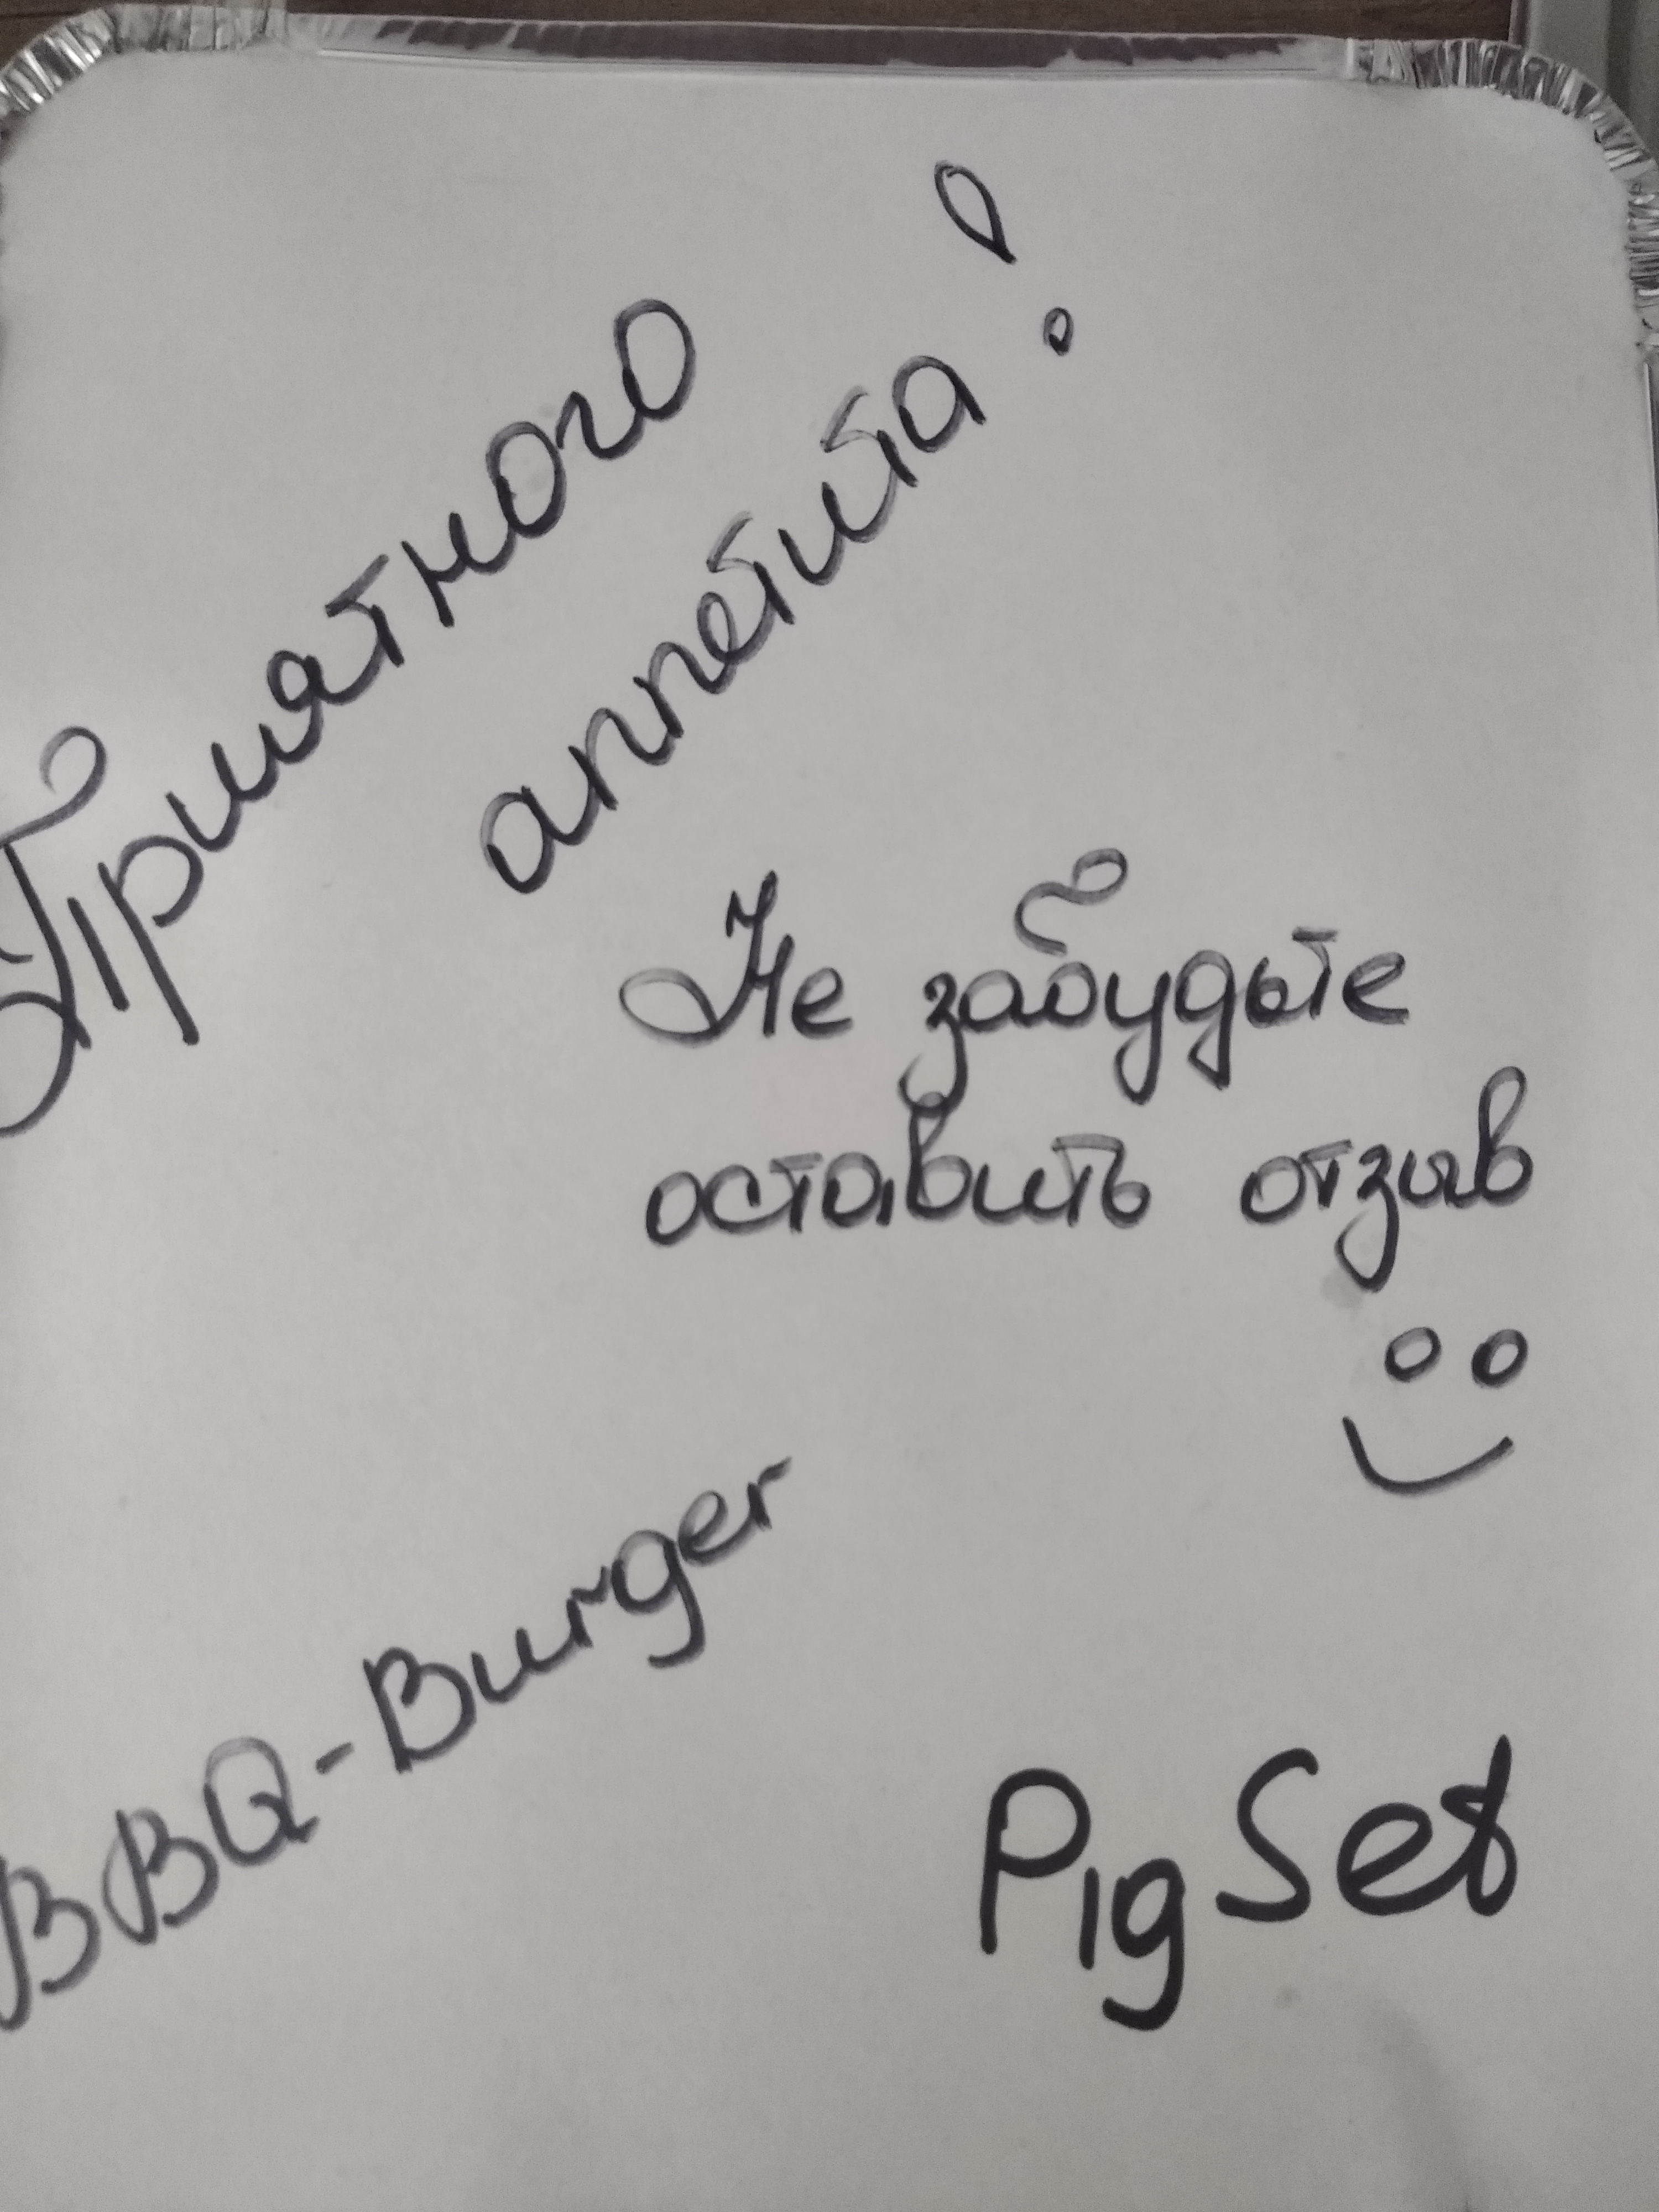 Приятного
аппетита!
Не забудьте
оставить отзыв
BBQ-Burger
Pig Set